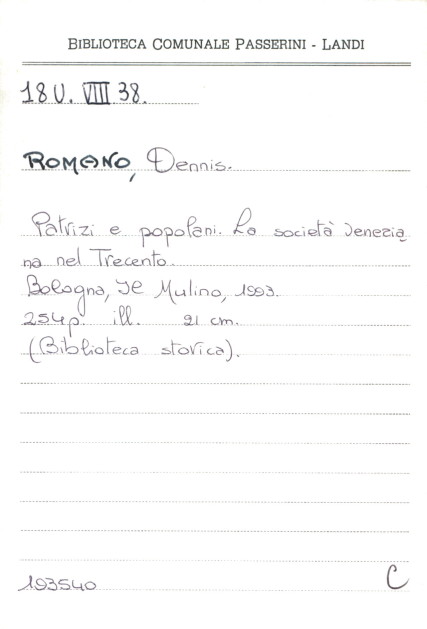 BIBLIOTECA COMUNALE PASSERINI - LANDI
18 U. VIII 38.
ROMANO, Dennis.
Patrizi e popolani. La società venezia
na nel Trecento.
Bologna, Il Mulino, 1993.
254 p. ill. 21 cm.
(Biblioteca storica).
193540
C